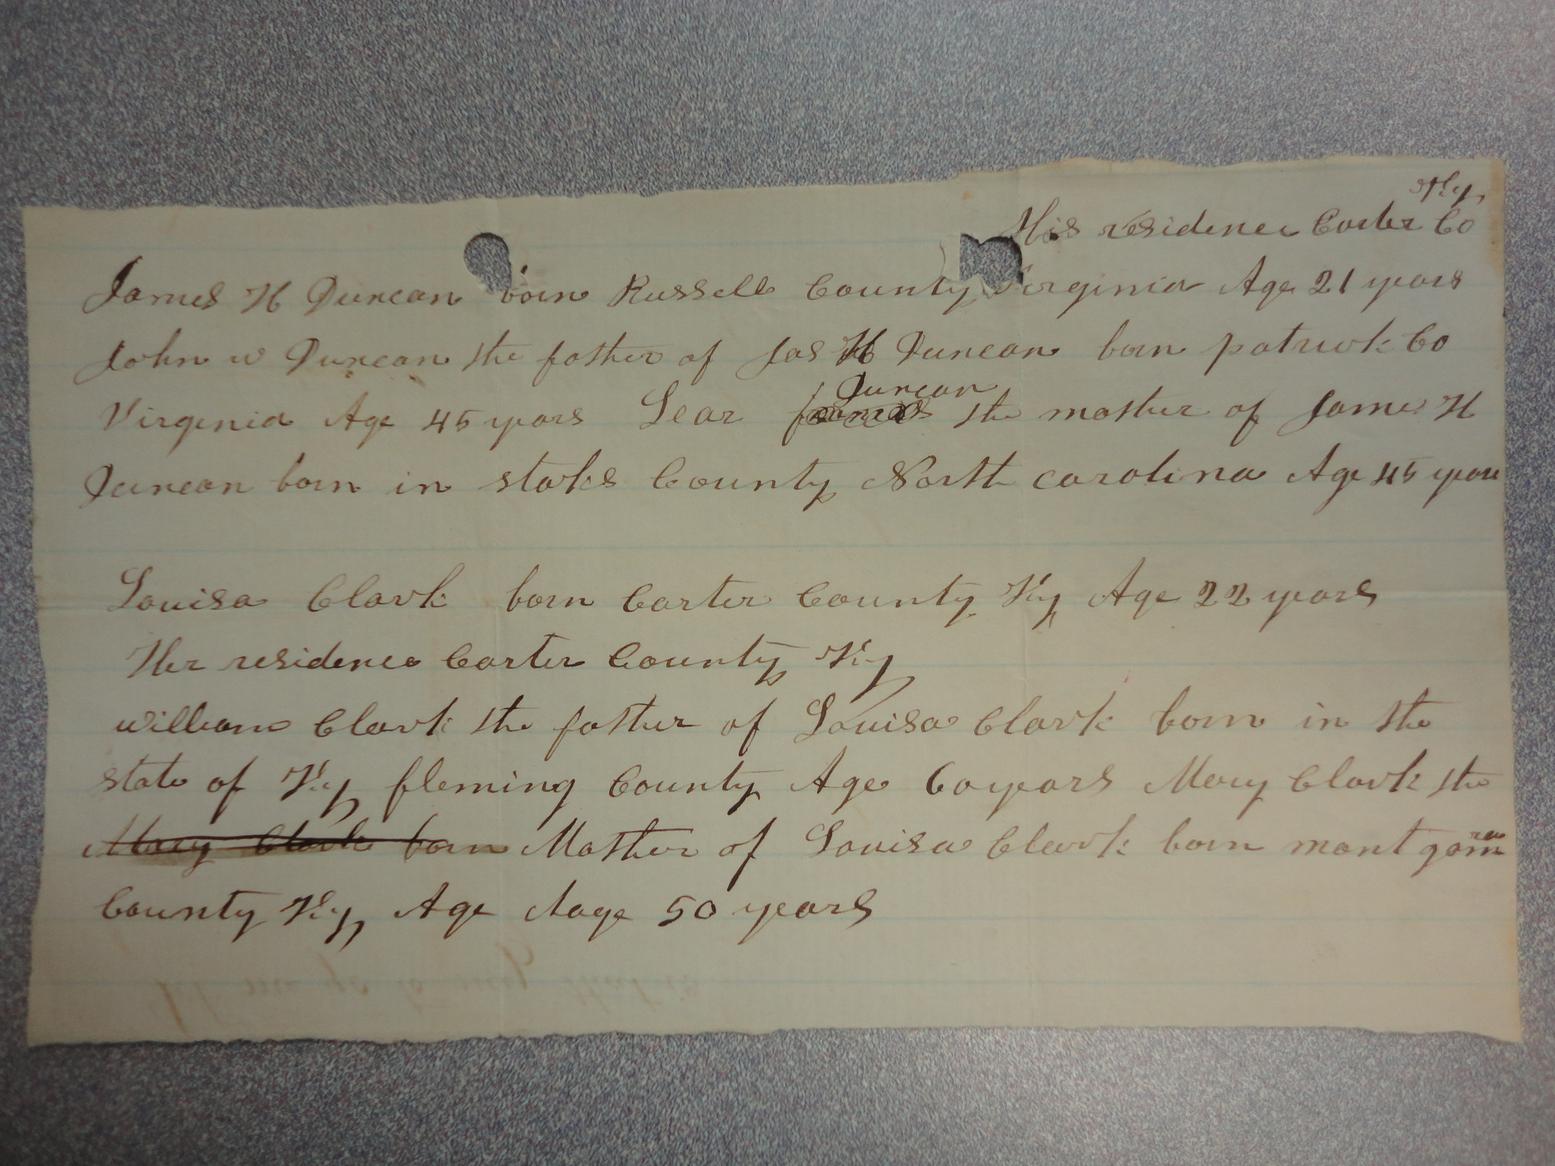 Ky,
His residence Carter Co
James H Duncan born Russell County Virginia Age 21 years
John w Duncan the father of Jas H Duncan born patrick Co
Duncan
Virginia Age 45 years Lear the mother of James H
Duncan born in stoks County North carolina Age 45 years
Louisa Clark born Carter County Ky Age 22 years
Her residence Carter County Ky
William Clark the father of Louisa Clark born in the
state of Ky fleming County Age 60 years Mary Clark the
Mary Clark born Mother of Louisa Clark born mont gom
County Ky, Age 50 years